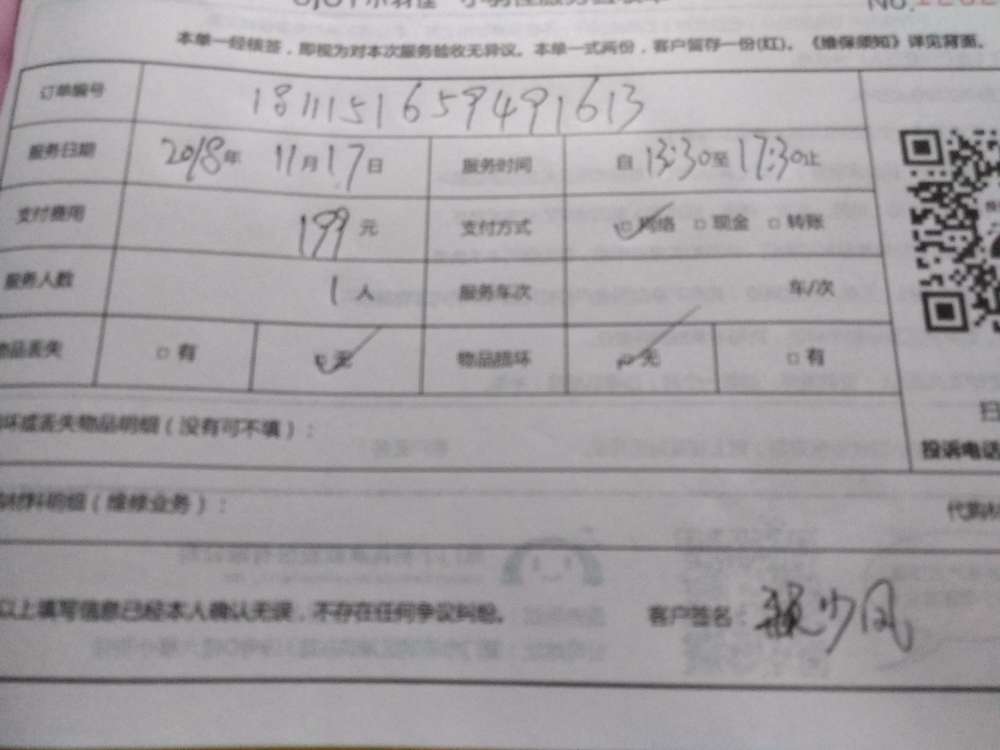 No.
本单一经核签，即视为对本次服务验收无异议。本单一式两份，客户留存一份(红)。《维保须知》详见背面。
订单编号 181115165949 1613
服务日期 2018年 11月17日 服务时间 自 13:30至 17:30止
支付费用 199元 支付方式 □网络 □现金 □转账
服务人数 1人 服务车次 年/次
物品丢失 □有 □无 物品损坏 □无 □有
坏或丢失物品明细（没有可不填）：
投诉电话
材料明细（维修业务）： 代购
以上填写信息已经本人确认无误，不存在任何争议纠纷。 客户签名：